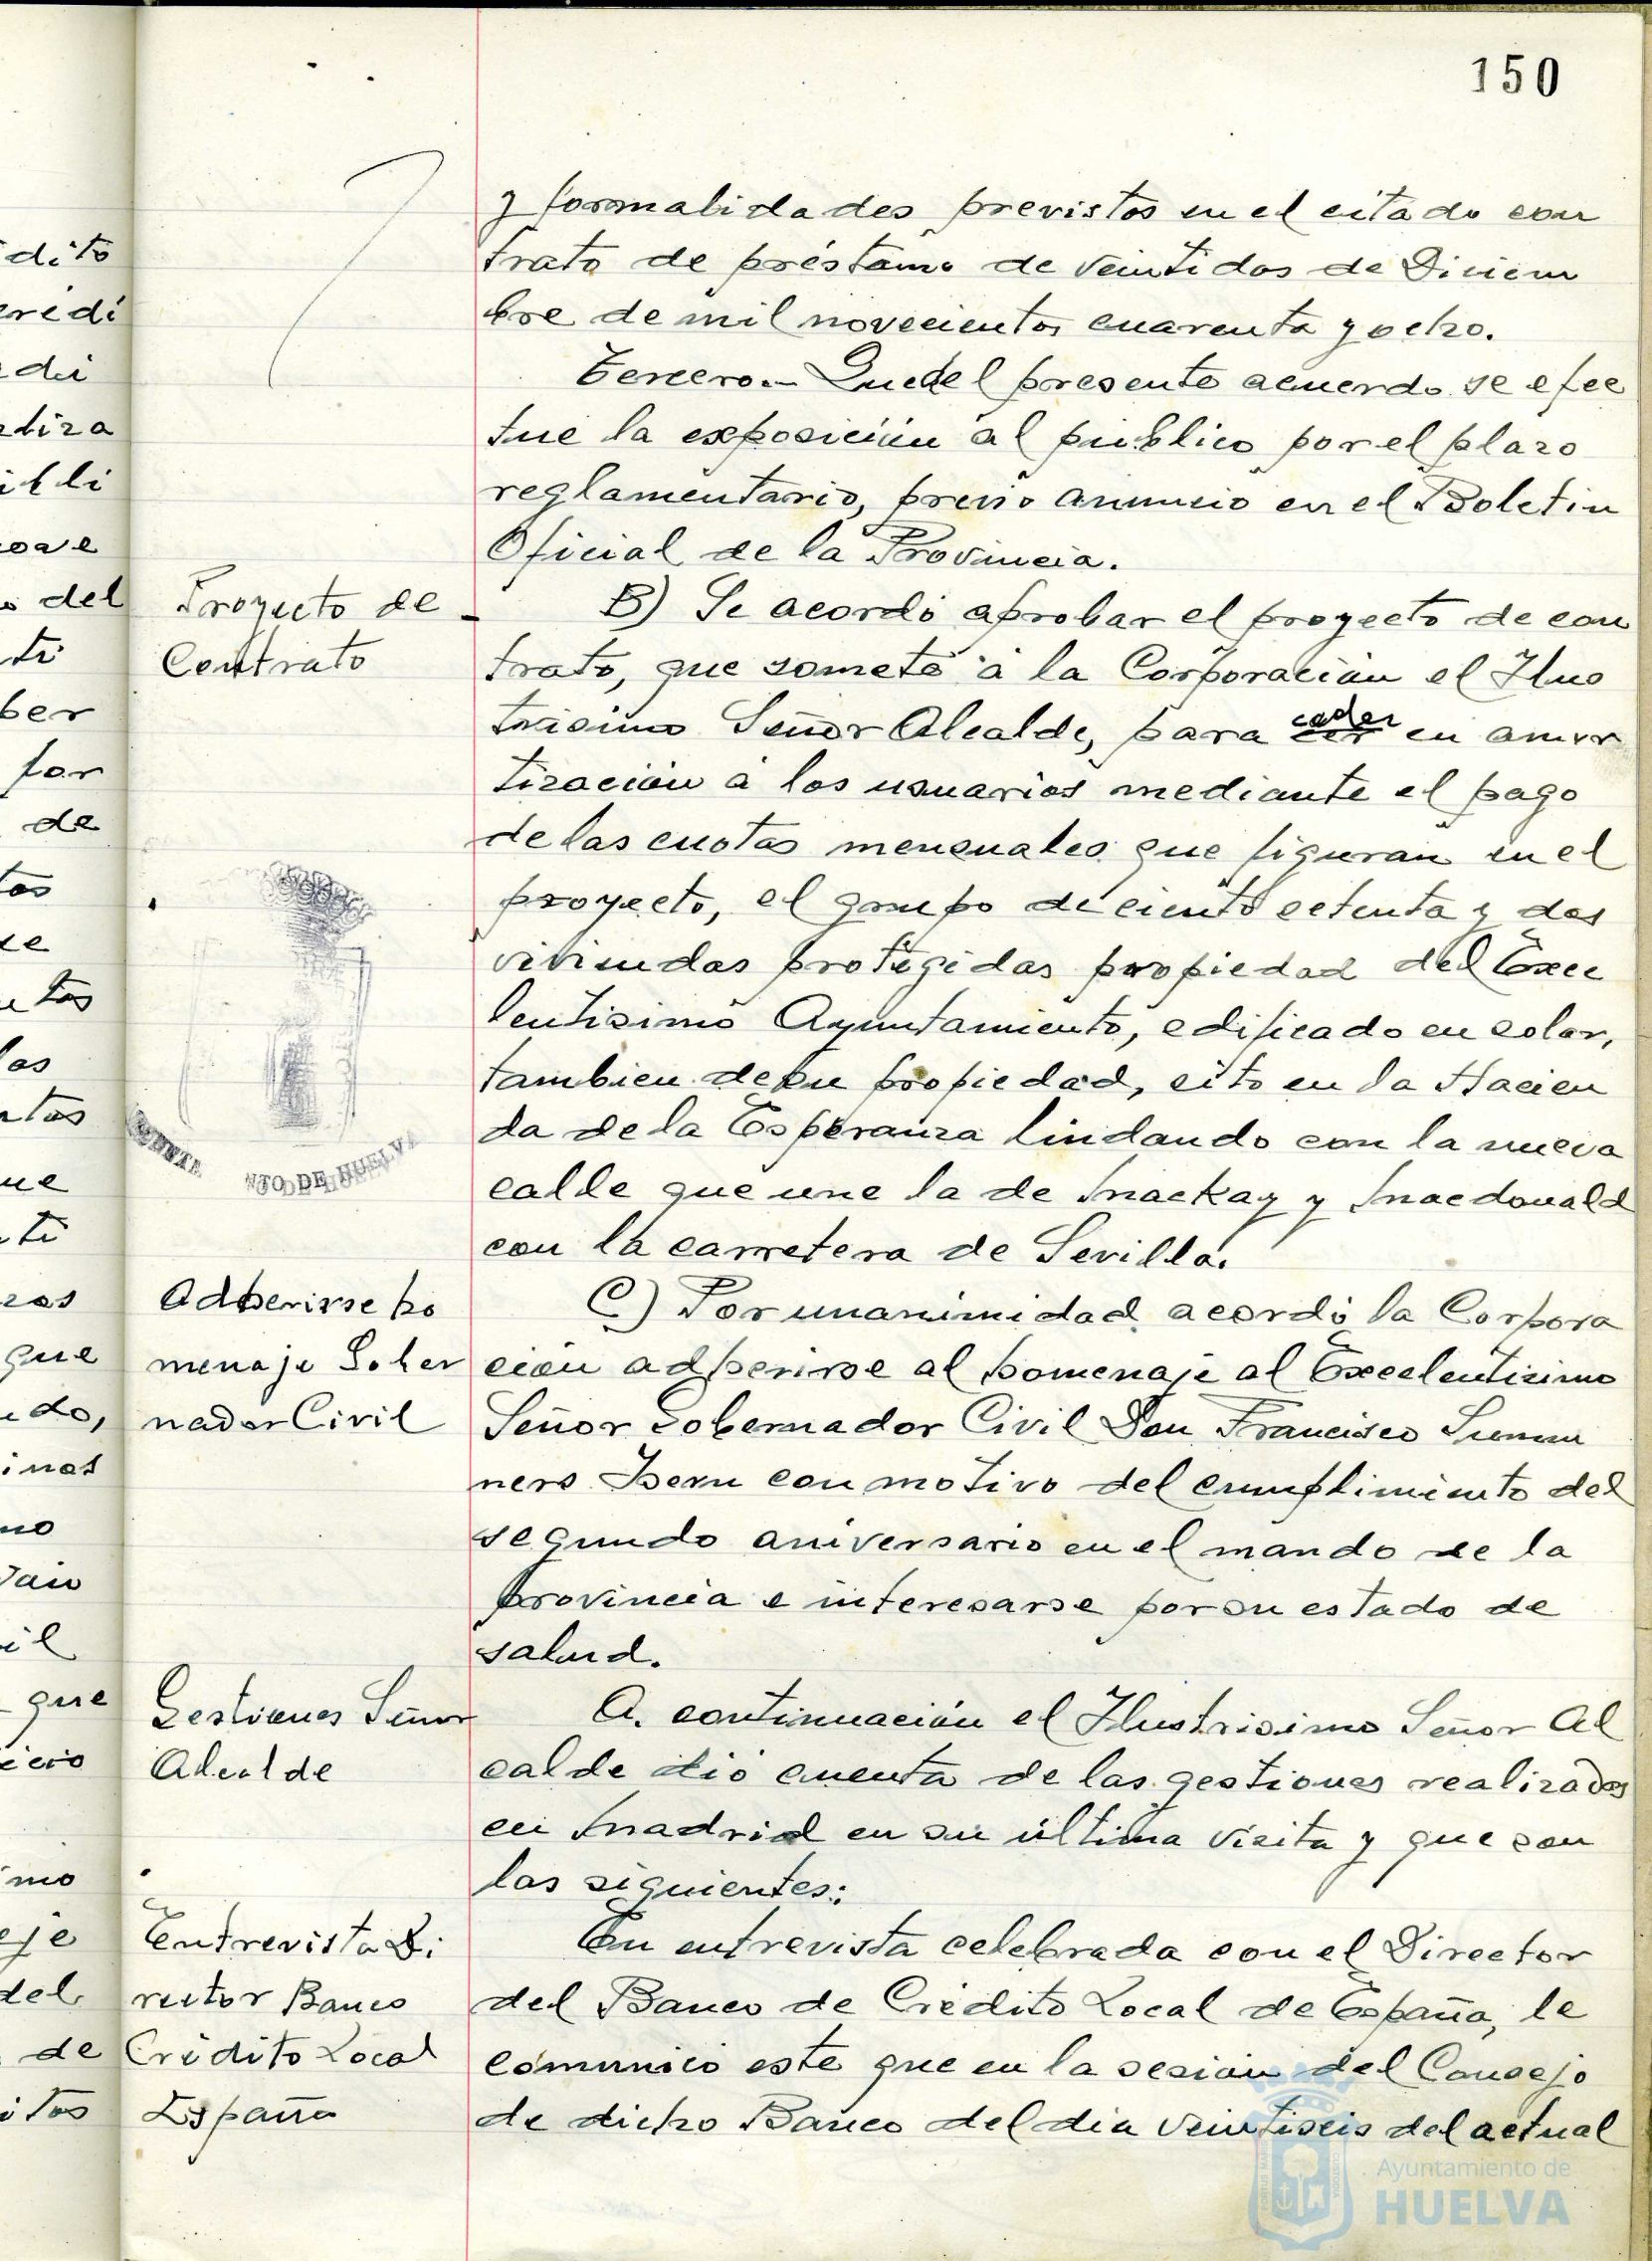 150
y formalidades previstos en el citado con
trato de préstamo de veintidos de Diciem
bre de mil novecientos cuarenta y ocho.
Tercero.- Que del presente acuerdo se efec
tue la exposición al público por el plazo
reglamentario, previo anuncio en el Boletin
Oficial de la Provincia.
Proyecto de
Contrato
B) Se acordó aprobar el proyecto de con
trato, que somete a la Corporación el Ilus
trisimo Señor Alcalde, para ceder en amor
tización a los usuarios mediante el pago
de las cuotas mensuales que figuran en el
proyecto, el grupo de ciento setenta y dos
viviendas protegidas propiedad del Exce
lentisimo Ayuntamiento, edificado en solar,
tambien de su propiedad, sito en la Hacien
da de la Esperanza lindando con la nueva
calle que une la de Mackay y Macdonald
con la carretera de Sevilla.
NTO DE HUELVA
Adherirse ho
menaje Gober
nador Civil
C) Por unanimidad acordó la Corpora
ción adherirse al homenaje al Excelentisimo
Señor Gobernador Civil Don Francisco Summ
ners Isern con motivo del cumplimiento del
segundo aniversario en el mando de la
provincia e interesarse por su estado de
salud.
Gestiones Señor
Alcalde
A continuación el Ilustrisimo Señor Al
calde dió cuenta de las gestiones realizadas
en Madrid en su última visita y que son
las siguientes:
Entrevista Di
rector Banco
Crédito Local
España
En entrevista celebrada con el Director
del Banco de Crédito Local de España, le
comunicó este que en la sesión del Consejo
de dicho Banco del dia veintiseis del actual
Ayuntamiento de
HUELVA